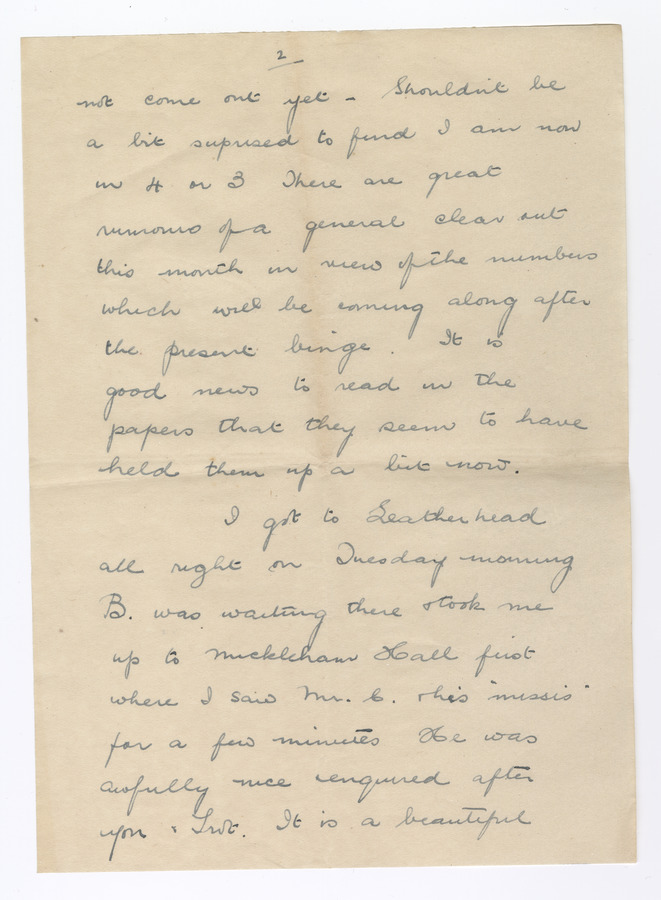 2
not come out yet - Shouldn't be
a bit suprised to find I am now
in 4 or 3 There are great
rumours of a general clear out
this month in view of the numbers
which will be coming along after
the present binge. It is
good news to read in the
papers that they seem to have
held them up a bit now.
I got to Leatherhead
all right on Tuesday morning
B. was waiting there & took me
up to Mickleham Hall first
where I saw Mr. C. & his "missis"
for a few minutes He was
awfully nice & enquired after
you & . It is a beautiful